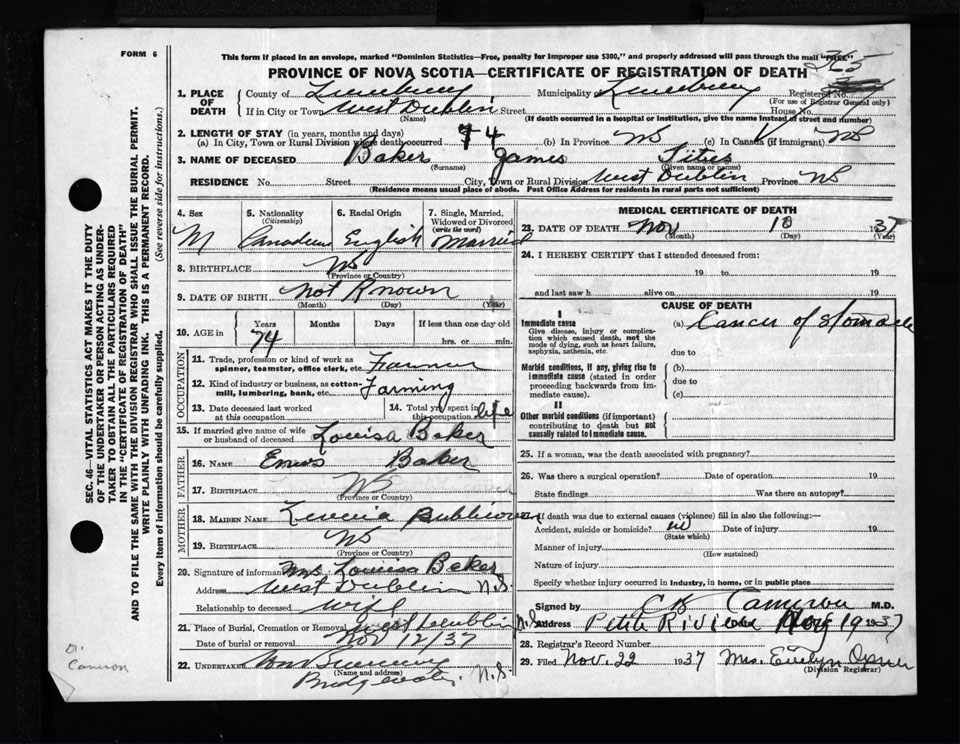 FORM 6
This form if placed in an envelope, marked "Dominion Statistics—Free, penalty for improper use $300," and properly addressed will pass through the mail "FREE"
365
PROVINCE OF NOVA SCOTIA—CERTIFICATE OF REGISTRATION OF DEATH
1. PLACE OF DEATH County of Lunenburg Municipality of Lunenburg Registered No.
(For use of Registrar General only)
If in City or Town West Dublin Street House No.
(Name) (If death occurred in a hospital or institution, give the name instead of street and number)
2. LENGTH OF STAY (in years, months and days)
(a) In City, Town or Rural Division where death occurred 74 (b) In Province NS (c) In Canada (if immigrant) NS
3. NAME OF DECEASED Baker James Titus
(Surname) (Given name or names)
RESIDENCE No. Street City, Town or Rural Division West Dublin Province NS
(Residence means usual place of abode. Post Office Address for residents in rural parts not sufficient)
4. Sex 5. Nationality (Citizenship) 6. Racial Origin 7. Single, Married, Widowed or Divorced (write the word)
M Canadian English Married
8. BIRTHPLACE NS
(Province or Country)
9. DATE OF BIRTH Not Known
(Month) (Day) (Year)
10. AGE in Years Months Days If less than one day old
74 hrs. or min.
OCCUPATION
11. Trade, profession or kind of work as spinner, teamster, office clerk, etc. Farmer
12. Kind of industry or business, as cotton-mill, lumbering, bank, etc. Farming
13. Date deceased last worked at this occupation 14. Total yrs. spent in this occupation life
15. If married give name of wife or husband of deceased Louisa Baker
FATHER
16. NAME Baker
17. BIRTHPLACE NS
(Province or Country)
MOTHER
18. MAIDEN NAME
19. BIRTHPLACE NS
(Province or Country)
20. Signature of informant Mrs Louisa Baker
Address West Dublin N.S.
Relationship to deceased Wife
21. Place of Burial, Cremation or Removal West Dublin N.S.
Date of burial or removal Nov 12/37
22. Undertaker
(Name and address)
Bridgewater, N.S.
MEDICAL CERTIFICATE OF DEATH
23. DATE OF DEATH Nov 10 1937
(Month) (Day) (Year)
24. I HEREBY CERTIFY that I attended deceased from:
19 to 19
and last saw h alive on 19
CAUSE OF DEATH
I
Immediate cause (a) Cancer of stomach
Give disease, injury or complication which caused death, not the mode of dying, such as heart failure, asphyxia, asthenia, etc. due to
Morbid conditions, if any, giving rise to immediate cause (stated in order proceeding backwards from immediate cause). (b)
due to
(c)
II
Other morbid conditions (if important) contributing to death but not causally related to immediate cause.
25. If a woman, was the death associated with pregnancy?
26. Was there a surgical operation? Date of operation 19
State findings Was there an autopsy?
27. If death was due to external causes (violence) fill in also the following:—
Accident, suicide or homicide? no Date of injury 19
(State which)
Manner of injury
(How sustained)
Nature of injury
Specify whether injury occurred in industry, in home, or in public place
Signed by Cameron M.D.
Address Petite Riviere Nov 19 1937
28. Registrar's Record Number
29. Filed Nov. 22 1937 Mrs. Evelyn
(Division Registrar)
SEC. 46—VITAL STATISTICS ACT MAKES IT THE DUTY
OF THE UNDERTAKER OR PERSON ACTING AS UNDER-
TAKER TO OBTAIN ALL THE PARTICULARS REQUIRED
IN THE "CERTIFICATE OF REGISTRATION OF DEATH"
AND TO FILE THE SAME WITH THE DIVISION REGISTRAR WHO SHALL ISSUE THE BURIAL PERMIT.
WRITE PLAINLY WITH UNFADING INK. THIS IS A PERMANENT RECORD.
Every item of information should be carefully supplied. (See reverse side for instructions.)
Dr. Cameron